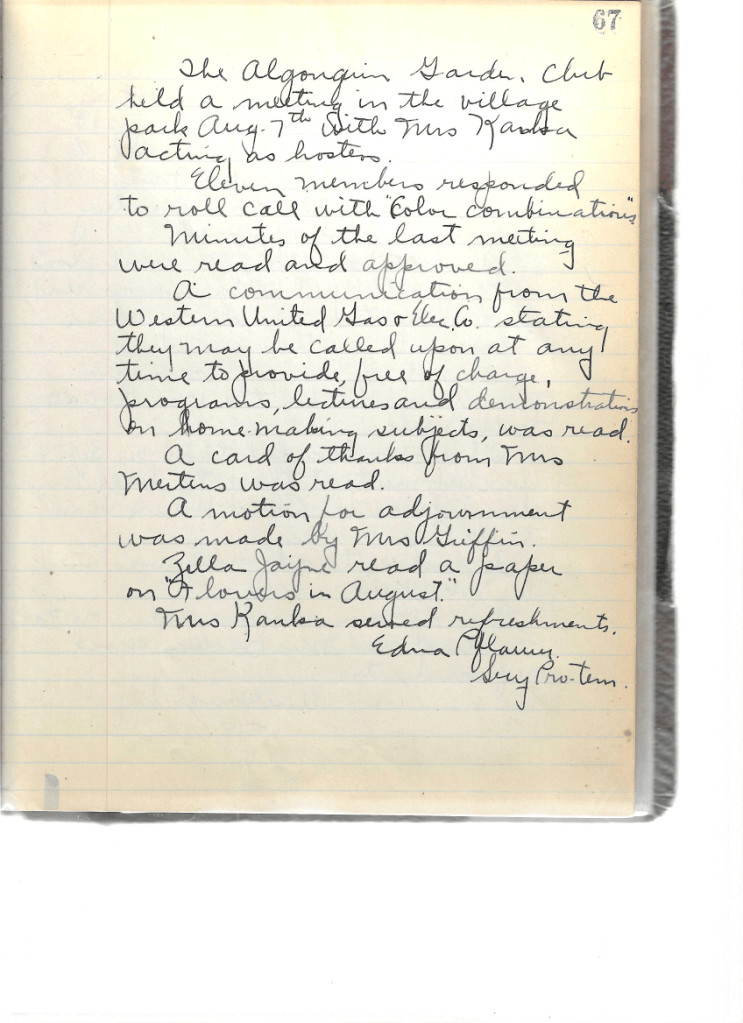 67
The Algonquin Garden Club
held a meeting in the village
park Aug. 7th with Mrs Kanka
acting as hostess.
Eleven members responded
to roll call with "Color combinations"
Minutes of the last meeting
were read and approved.
A communication from the
Western United Gas & Elec. Co. stating
they may be called upon at any
time to provide, free of charge,
programs, lectures and demonstrations
on home making subjects, was read.
A card of thanks from Mrs
Mertens was read.
A motion for adjournment
was made by Mrs Griffin.
Zella Jayne read a paper
on "Flowers in August."
Mrs Kanka served refreshments.
Edna
Secy Pro-tem.